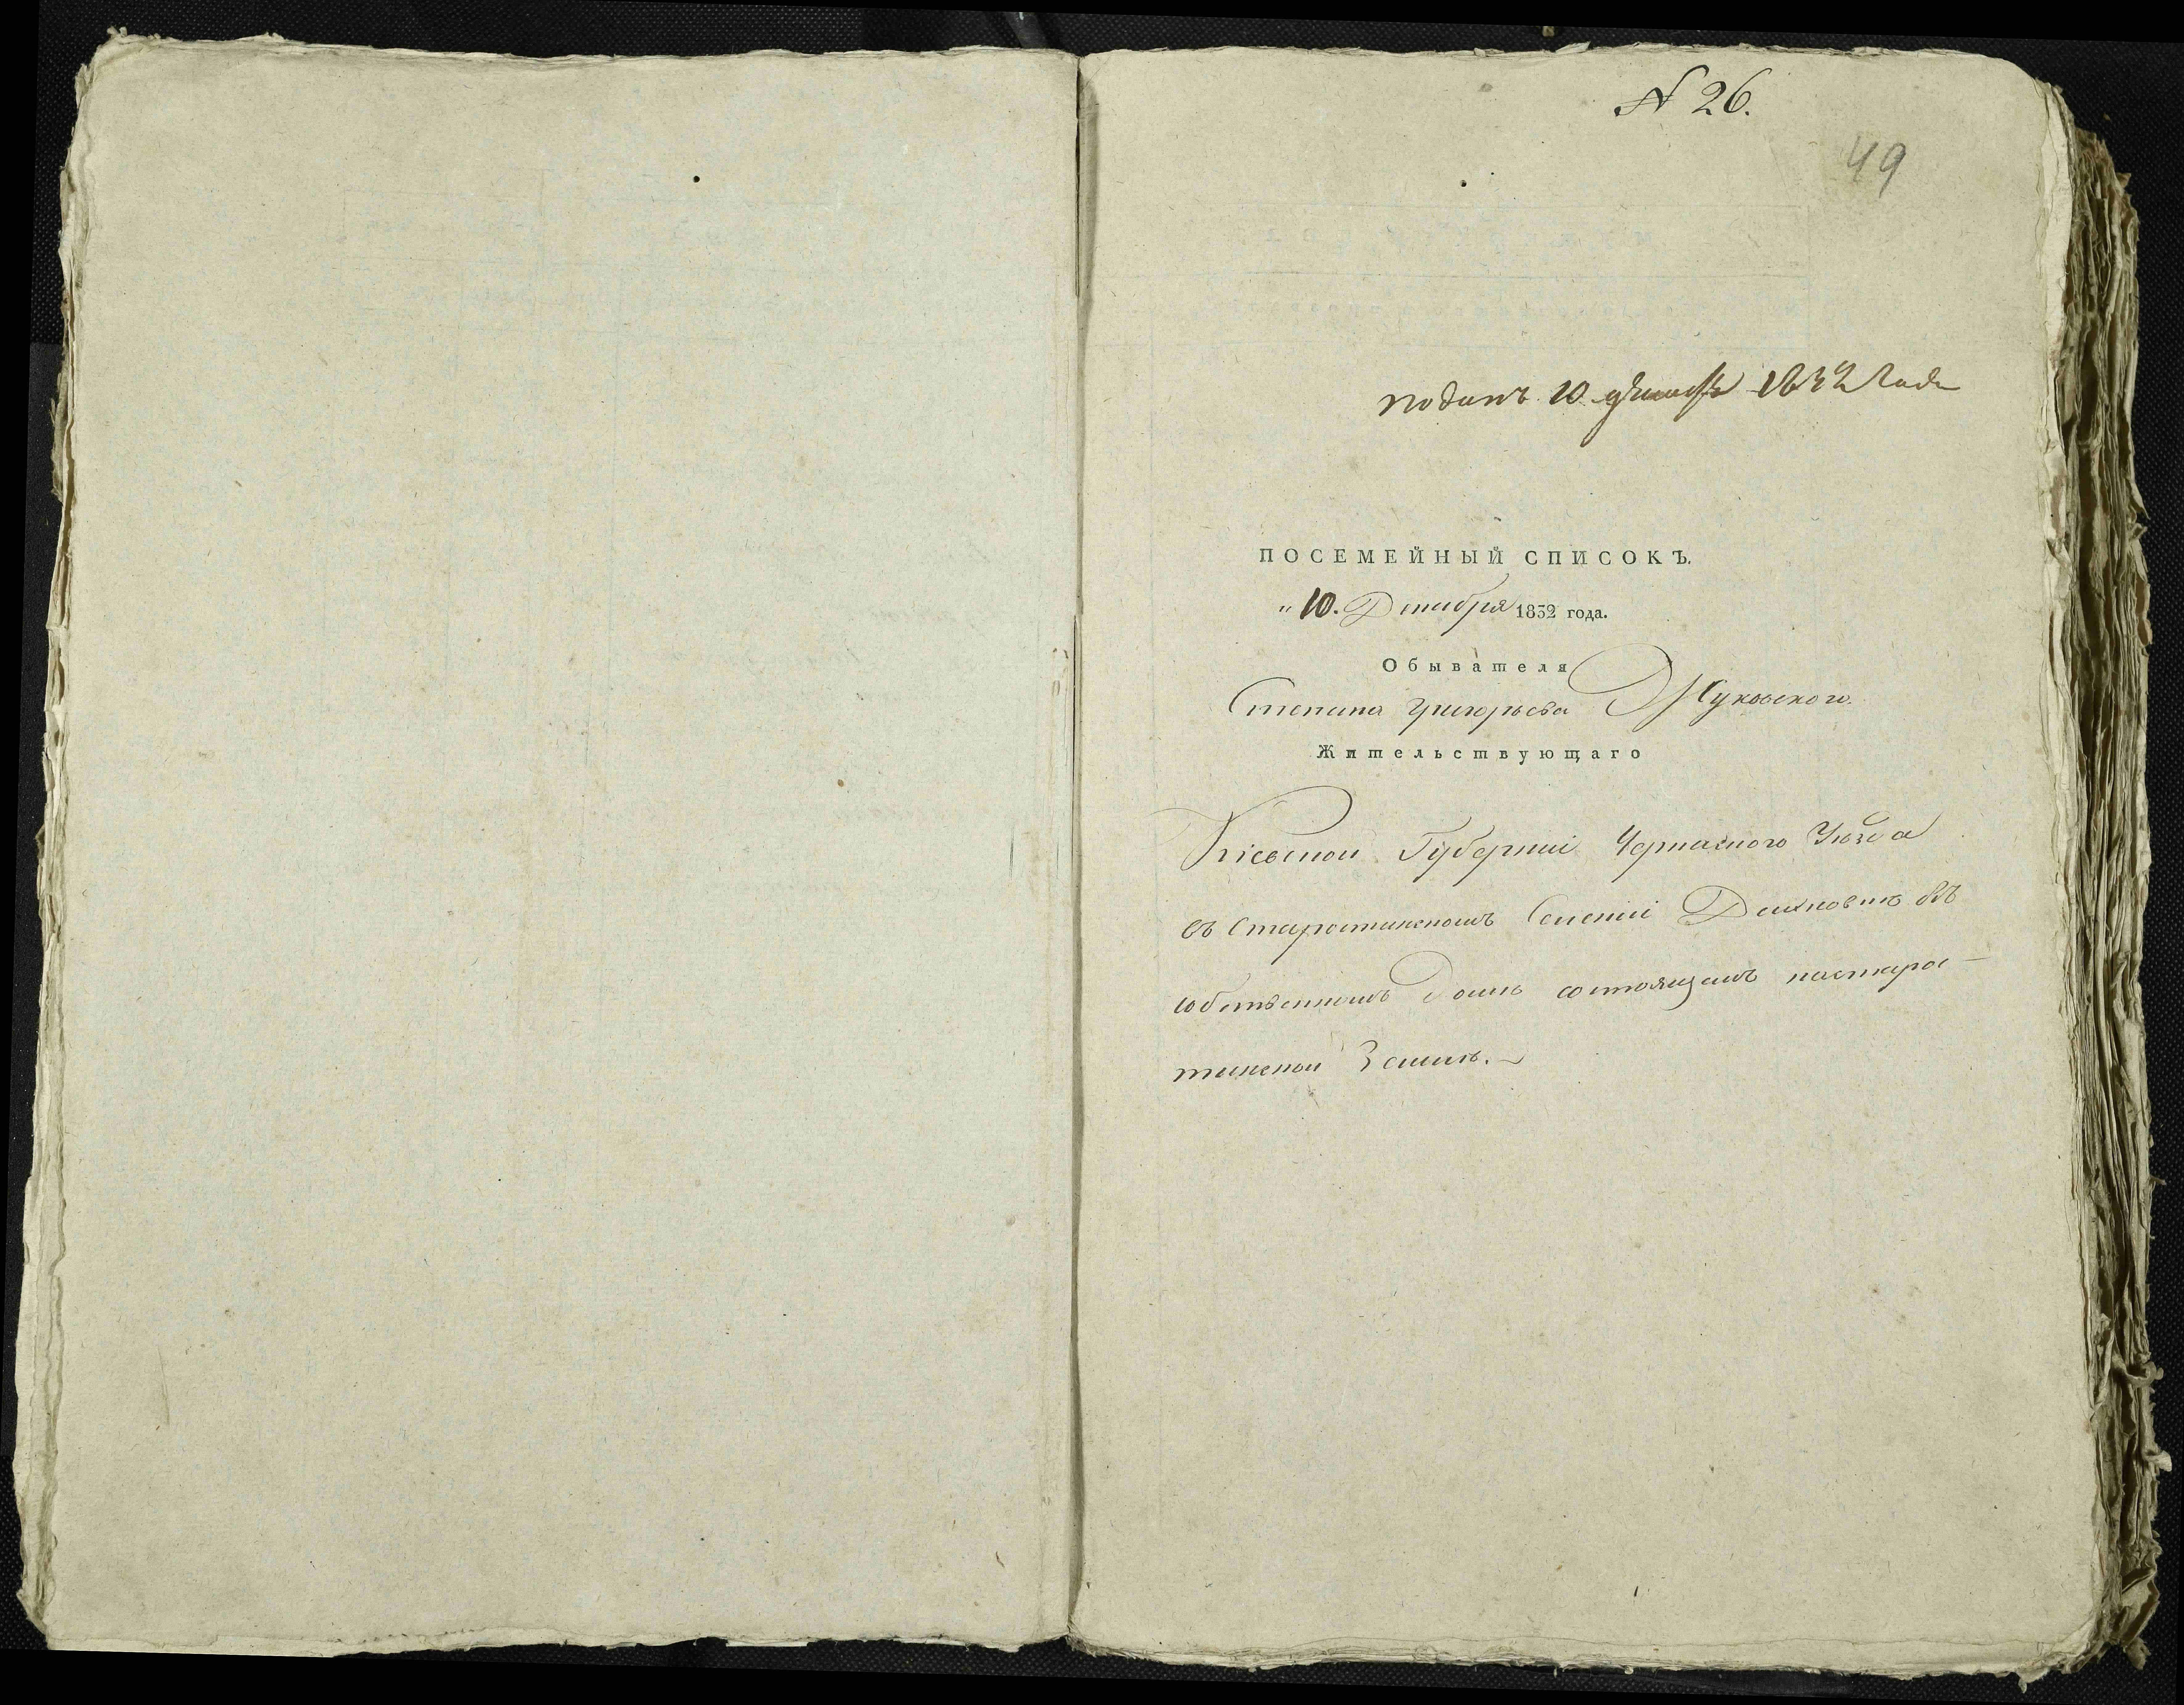 N 26.
49
поданъ 10 декабря 1832 года
ПОСЕМЕЙНЫЙ СПИСОКЪ.
"10. Декабря 1832 года.
Обывателя
Степана Григорьева Жуковского.
Жительствующаго
Кіевской Губерніи Черкаского Уѣзда
въ Старостинскомъ Селеніи въ
собственномъ домѣ состоящемъ настарос-
тинской Землѣ.